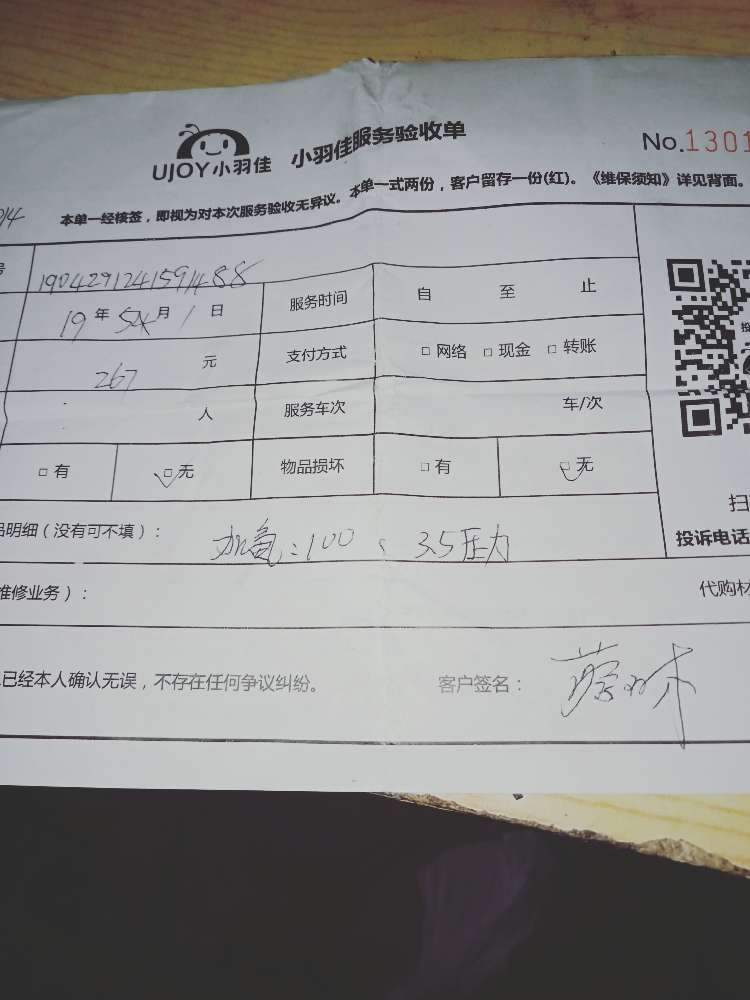 UJOY小羽佳 小羽佳服务验收单 No.1301
本单一经核签，即视为对本次服务验收无异议。本单一式两份，客户留存一份(红)。《维保须知》详见背面。
号 1904291241591488
19年5月1日 服务时间 自 至 止
267 元 支付方式 □网络 □现金 □转账
人 服务车次 车/次
□有 □无 物品损坏 □有 □无
扫
品明细（没有可不填）： 加氟：100、3.5压力
投诉电话
维修业务）： 代购材
已经本人确认无误，不存在任何争议纠纷。 客户签名：